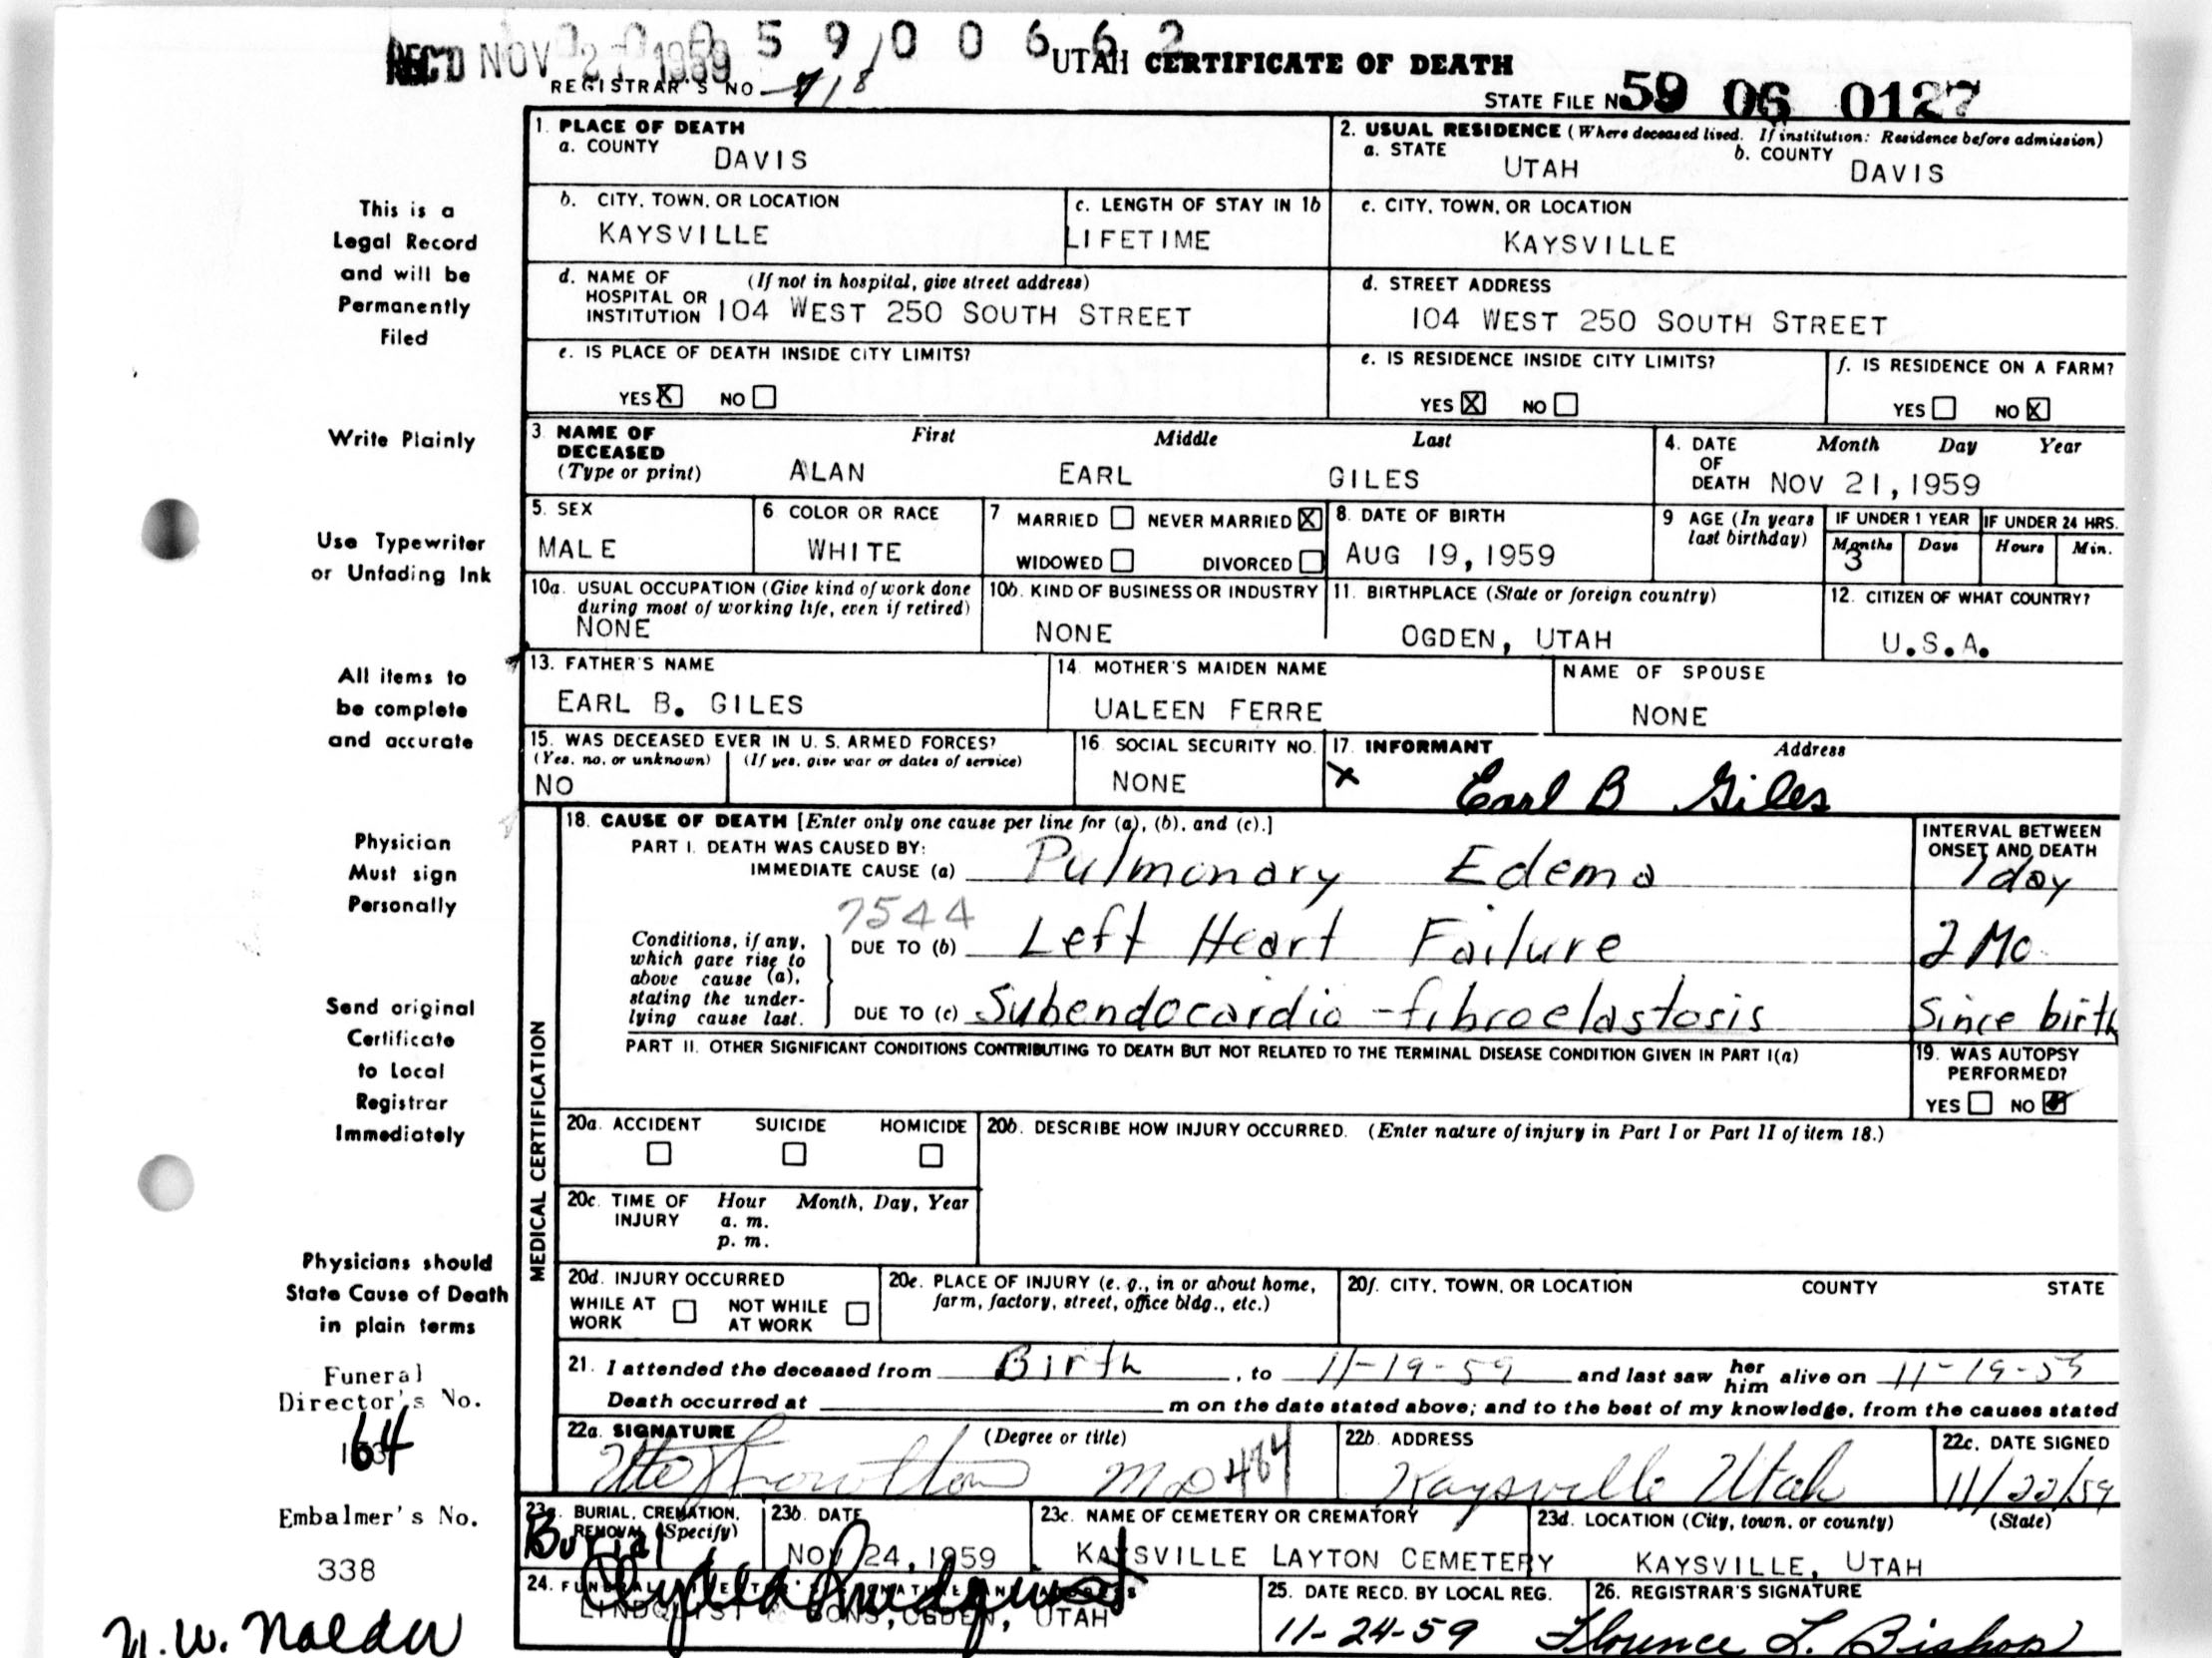 REC'D NOV 27 1959
5 9 0 0 6 6 2
UTAH CERTIFICATE OF DEATH
REGISTRAR'S NO 718
STATE FILE No 59 06 0127
This is a
Legal Record
and will be
Permanently
Filed
Write Plainly
Use Typewriter
or Unfading Ink
All items to
be complete
and accurate
Physician
Must sign
Personally
Send original
Certificate
to Local
Registrar
Immediately
Physicians should
State Cause of Death
in plain terms
Funeral
Director's No.
164
Embalmer's No.
338
1. PLACE OF DEATH
a. COUNTY DAVIS
2. USUAL RESIDENCE (Where deceased lived. If institution: Residence before admission)
a. STATE UTAH b. COUNTY DAVIS
b. CITY, TOWN, OR LOCATION KAYSVILLE
c. LENGTH OF STAY IN 1b LIFETIME
c. CITY, TOWN, OR LOCATION KAYSVILLE
d. NAME OF HOSPITAL OR INSTITUTION (If not in hospital, give street address) 104 WEST 250 SOUTH STREET
d. STREET ADDRESS 104 WEST 250 SOUTH STREET
e. IS PLACE OF DEATH INSIDE CITY LIMITS? YES X NO
e. IS RESIDENCE INSIDE CITY LIMITS? YES X NO
f. IS RESIDENCE ON A FARM? YES NO X
3 NAME OF DECEASED (Type or print) First Middle Last
ALAN EARL GILES
4. DATE OF DEATH Month Day Year
NOV 21, 1959
5. SEX MALE
6 COLOR OR RACE WHITE
7 MARRIED NEVER MARRIED X
WIDOWED DIVORCED
8. DATE OF BIRTH AUG 19, 1959
9 AGE (In years last birthday)
IF UNDER 1 YEAR IF UNDER 24 HRS.
Months Days Hours Min.
3
10a. USUAL OCCUPATION (Give kind of work done during most of working life, even if retired) NONE
10b. KIND OF BUSINESS OR INDUSTRY NONE
11. BIRTHPLACE (State or foreign country) OGDEN, UTAH
12. CITIZEN OF WHAT COUNTRY? U.S.A.
13. FATHER'S NAME EARL B. GILES
14. MOTHER'S MAIDEN NAME UALEEN FERRE
NAME OF SPOUSE NONE
15. WAS DECEASED EVER IN U. S. ARMED FORCES?
(Yes, no, or unknown) (If yes, give war or dates of service)
NO
16. SOCIAL SECURITY NO. NONE
17. INFORMANT Address
x Earl B Giles
MEDICAL CERTIFICATION
18. CAUSE OF DEATH [Enter only one cause per line for (a), (b), and (c).]
INTERVAL BETWEEN ONSET AND DEATH
PART I. DEATH WAS CAUSED BY:
IMMEDIATE CAUSE (a) Pulmonary Edema 1 day
7544
Conditions, if any, which gave rise to above cause (a), stating the underlying cause last.
DUE TO (b) Left Heart Failure 2 Mo
DUE TO (c) Subendocardio-fibroelastosis Since birth
PART II. OTHER SIGNIFICANT CONDITIONS CONTRIBUTING TO DEATH BUT NOT RELATED TO THE TERMINAL DISEASE CONDITION GIVEN IN PART I(a)
19. WAS AUTOPSY PERFORMED?
YES NO
20a. ACCIDENT SUICIDE HOMICIDE
20b. DESCRIBE HOW INJURY OCCURRED. (Enter nature of injury in Part I or Part II of item 18.)
20c. TIME OF INJURY Hour Month, Day, Year
a. m.
p. m.
20d. INJURY OCCURRED
WHILE AT WORK NOT WHILE AT WORK
20e. PLACE OF INJURY (e. g., in or about home, farm, factory, street, office bldg., etc.)
20f. CITY, TOWN, OR LOCATION COUNTY STATE
21. I attended the deceased from Birth, to 11-19-59 and last saw her him alive on 11-19-59
Death occurred at m on the date stated above; and to the best of my knowledge, from the causes stated
22a. SIGNATURE (Degree or title)
MD 464
22b. ADDRESS Kaysville Utah
22c. DATE SIGNED 11/22/59
23a. BURIAL, CREMATION, REMOVAL (Specify) Burial
23b. DATE NOV 24, 1959
23c. NAME OF CEMETERY OR CREMATORY KAYSVILLE LAYTON CEMETERY
23d. LOCATION (City, town, or county) (State)
KAYSVILLE, UTAH
24. FUNERAL DIRECTOR'S SIGNATURE AND ADDRESS
LINDQUIST & SONS, OGDEN, UTAH
25. DATE RECD. BY LOCAL REG. 11-24-59
26. REGISTRAR'S SIGNATURE Florence L. Bishop